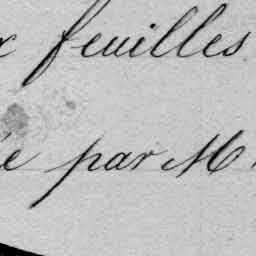 feuilles
par M